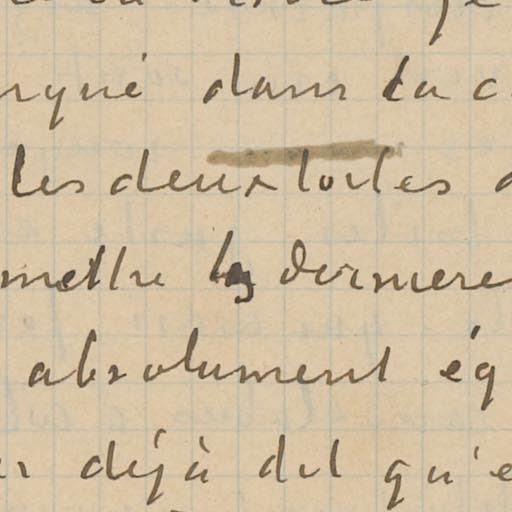 dans ta c
les deux toiles
mettre les dernière
absolument ég
déjà dit qu'e